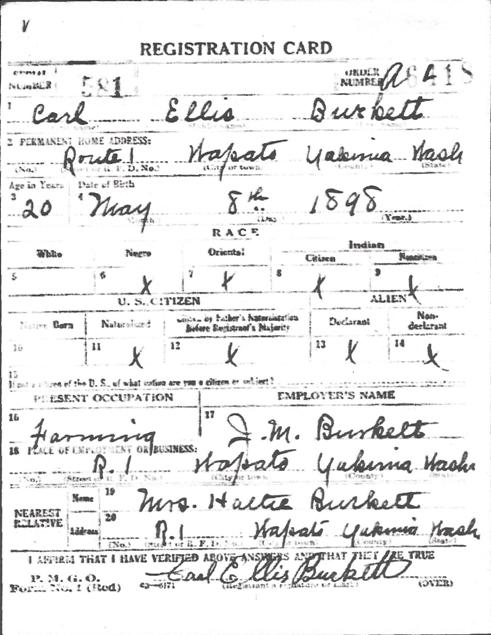 REGISTRATION CARD
SERIAL NUMBER 581 ORDER NUMBER A
1 Earl Ellis Burkett
2 PERMANENT HOME ADDRESS:
Route 1 Wapato Yakima Wash
(No.) (City or town) (County) (State)
Age in Years Date of Birth
3 20 4 May 8th 1898
(Month) (Day) (Year)
RACE
White Negro Oriental Indian
Citizen Noncitizen
5 6 x 7 x 8 x 9 x
U. S. CITIZEN ALIEN
Native Born Naturalized Citizen by Father's Naturalization Before Registrant's Majority Declarant Non-declarant
10 11 x 12 x 13 x 14 x
15 If not a citizen of the U. S., of what nation are you a citizen or subject?
PRESENT OCCUPATION EMPLOYER'S NAME
16 Farming 17 J. M. Burkett
18 PLACE OF EMPLOYMENT OR BUSINESS:
R. 1 Wapato Yakima Wash
(No.) (Street or R. F. D. No.) (City or town) (County) (State)
NEAREST RELATIVE Name 19 Mrs. Hattie Burkett
Address 20 R. 1 Wapato Yakima Wash
(No.) (Street or R. F. D. No.) (City or town) (County) (State)
I AFFIRM THAT I HAVE VERIFIED ABOVE ANSWERS AND THAT THEY ARE TRUE
P. M. G. O.
Form No. 1 (Red) Earl Ellis Burkett
(Registrant's signature or mark) (OVER)